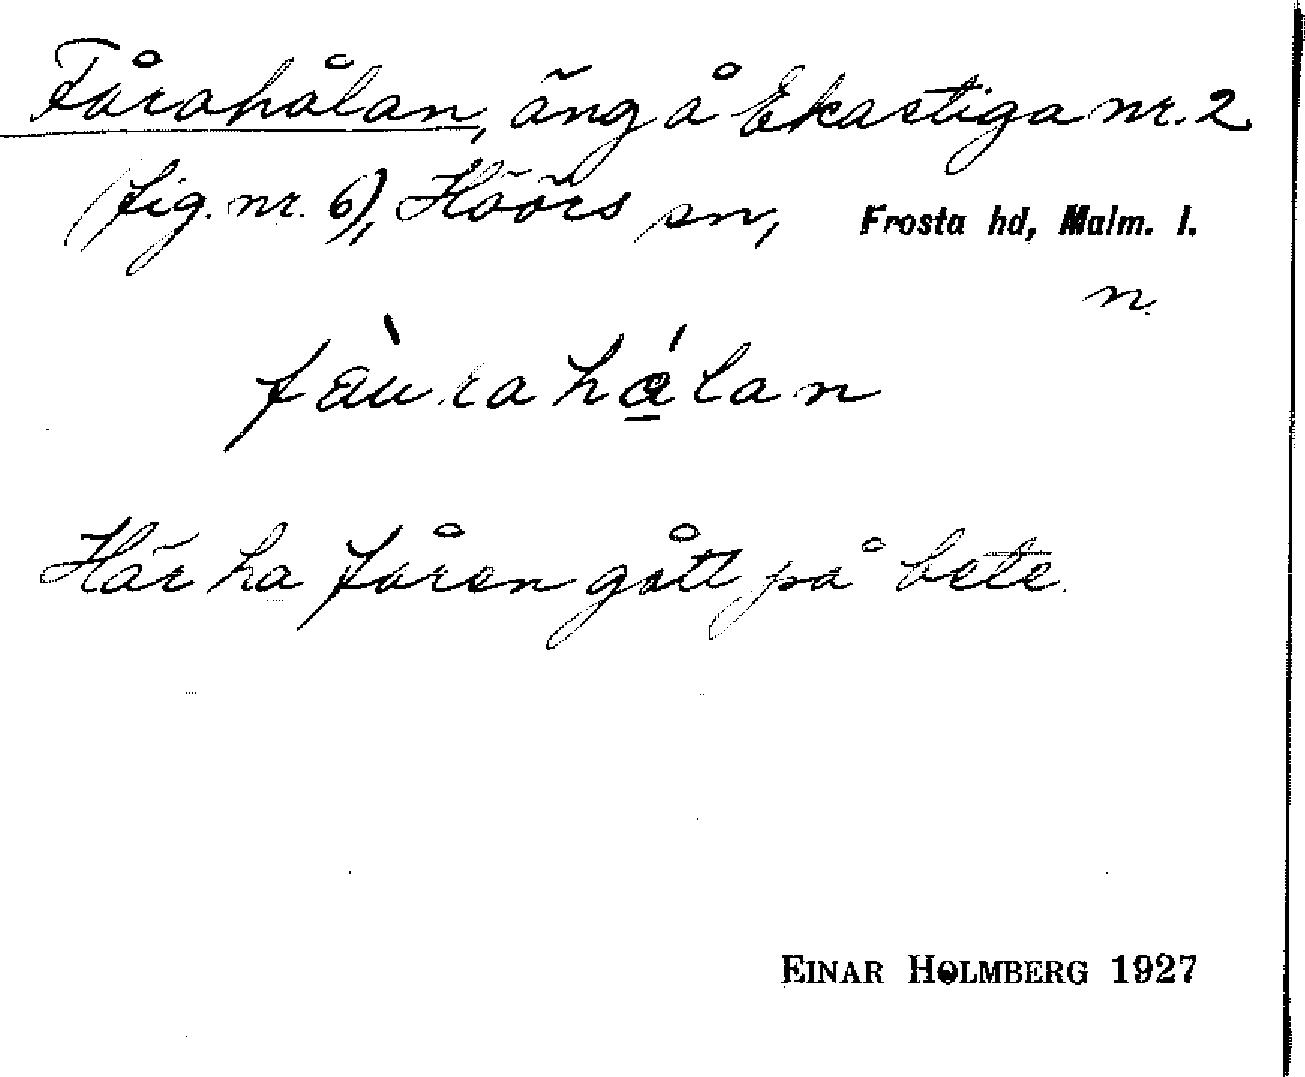 Fårahålan, äng å Ekastiga nr. 2
(fig. nr. 6), Höörs sn, Frosta hd, Malm. l.
n.
fàu.rahálan
Här ha fåren gått på bete.
EINAR HOLMBERG 1927